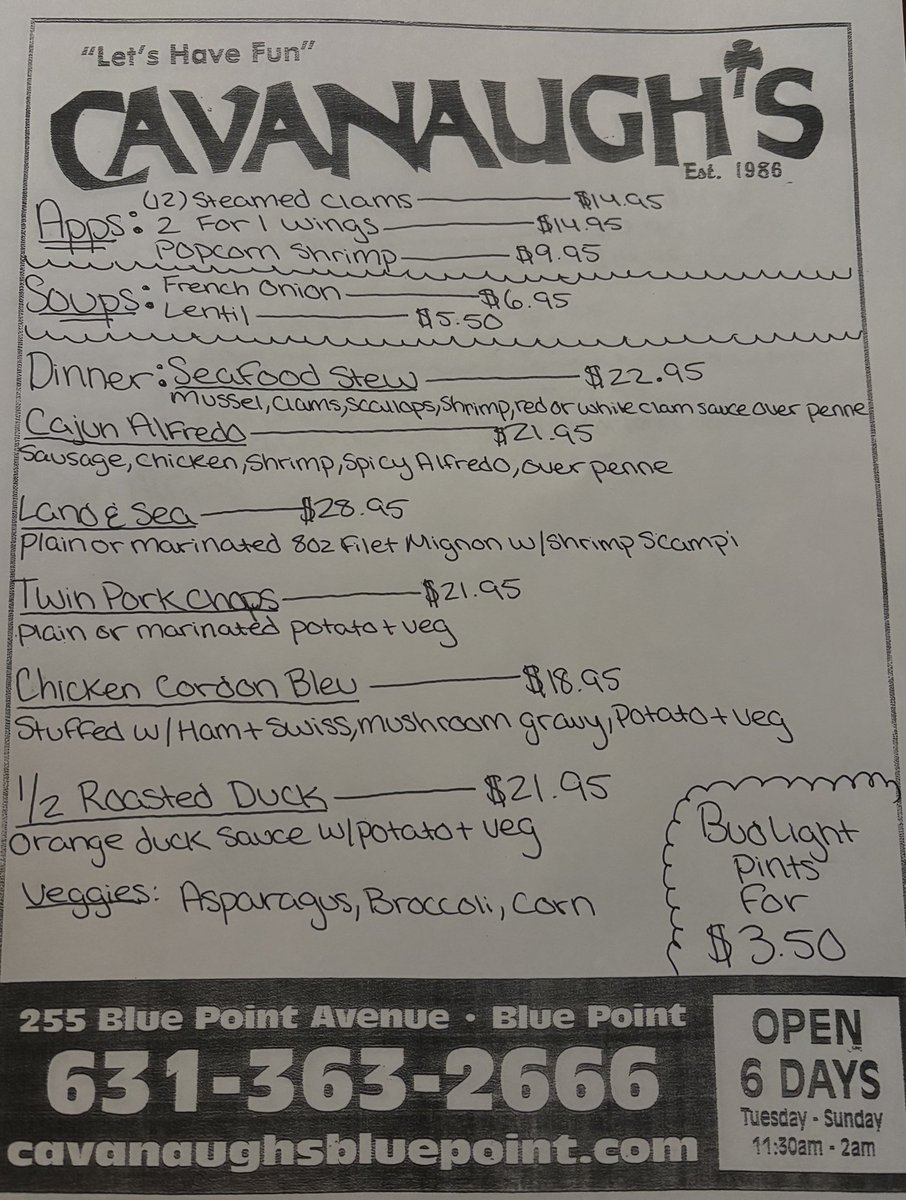 "Let's Have Fun"
CAVANAUGH'S
Est. 1986
Apps: (12) Steamed Clams $14.95
2 For 1 Wings $14.95
Popcorn Shrimp $9.95
Soups: French Onion $6.95
Lentil $5.50
Dinner: Seafood Stew $22.95
Mussel, Clams, Scculops, Shrimp, red or white clam sauce over penne
Cajun Alfredo $21.95
Sausage, Chicken, Shrimp, Spicy Alfredo, over penne
Land & Sea $28.95
Plain or marinated 8oz Filet Mignon w/Shrimp Scampi
Twin Pork Chops $21.95
plain or marinated potato + veg
Chicken Cordon Bleu $18.95
Stuffed w/ Ham + Swiss, mushroom gravy, Potato + veg
1/2 Roasted Duck $21.95
Orange duck sauce w/potato + veg
Veggies: Asparagus, Broccoli, Corn
Bud Light
Pints
For
$3.50
255 Blue Point Avenue • Blue Point
631-363-2666
cavanaughsbluepoint.com
OPEN
6 DAYS
Tuesday - Sunday
11:30am - 2am